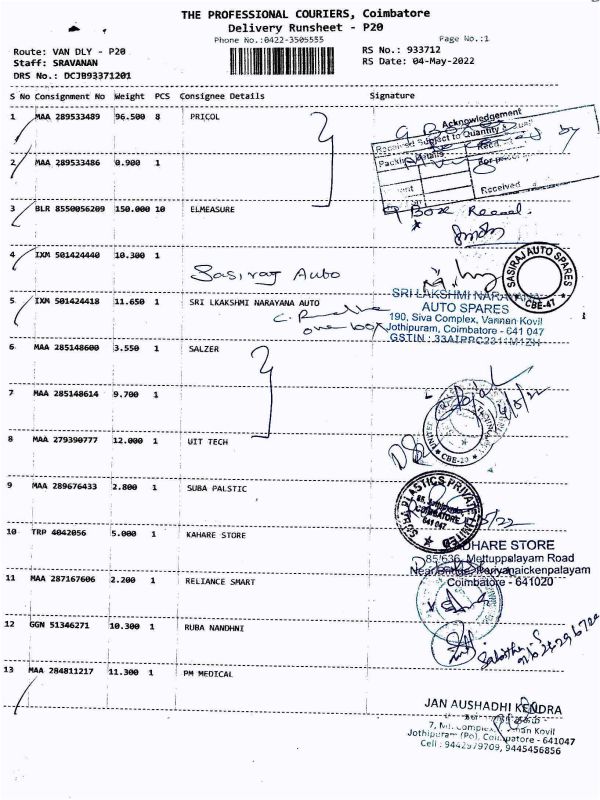 THE PROFESSIONAL COURIERS, Coimbatore
Delivery Runsheet - P20
Phone No.:0422-3505555
Page No.:1
Route: VAN DLY - P20
RS No.: 933712
Staff: SRAVANAN
RS Date: 04-May-2022
DRS No.: DCJB93371201
S No Consignment No Weight PCS Consignee Details Signature
1 MAA 289533489 96.500 8 PRICOL
Acknowledgement
Received Subject to Quantity &
Packing Details
Received
2 MAA 289533486 0.900 1
3 BLR 8550056209 150.000 10 ELMEASURE
9 Box
4 IXM 501424440 10.300 1
Sasiraj Auto
SASIRAJ AUTO SPARES
CBE-47
5 IXM 501424418 11.650 1 SRI LKAKSHMI NARAYANA AUTO
one box
SRI LAKSHMI NARAYANA
AUTO SPARES
190, Siva Complex, Vannan Kovil
Jothipuram, Coimbatore - 641 047
6 MAA 285148600 3.550 1 SALZER
7 MAA 285148614 9.700 1
8 MAA 279390777 12.000 1 UIT TECH
CBE-20
9 MAA 289676433 2.800 1 SUBA PALSTIC
PLASTICS PRIVATE
COIMBATORE
641 047
10 TRP 4042056 5.000 1 KAHARE STORE
STORE
85/636, Mettuppalayam Road
Periyanaickenpalayam
Coimbatore - 641020
11 MAA 287167606 2.200 1 RELIANCE SMART
12 GGN 51346271 10.300 1 RUBA NANDHNI
13 MAA 284811217 11.300 1 PM MEDICAL
JAN AUSHADHI KENDRA
Jothipuram (Po), Coimbatore - 641047
Cell : 9442979709, 9445456856